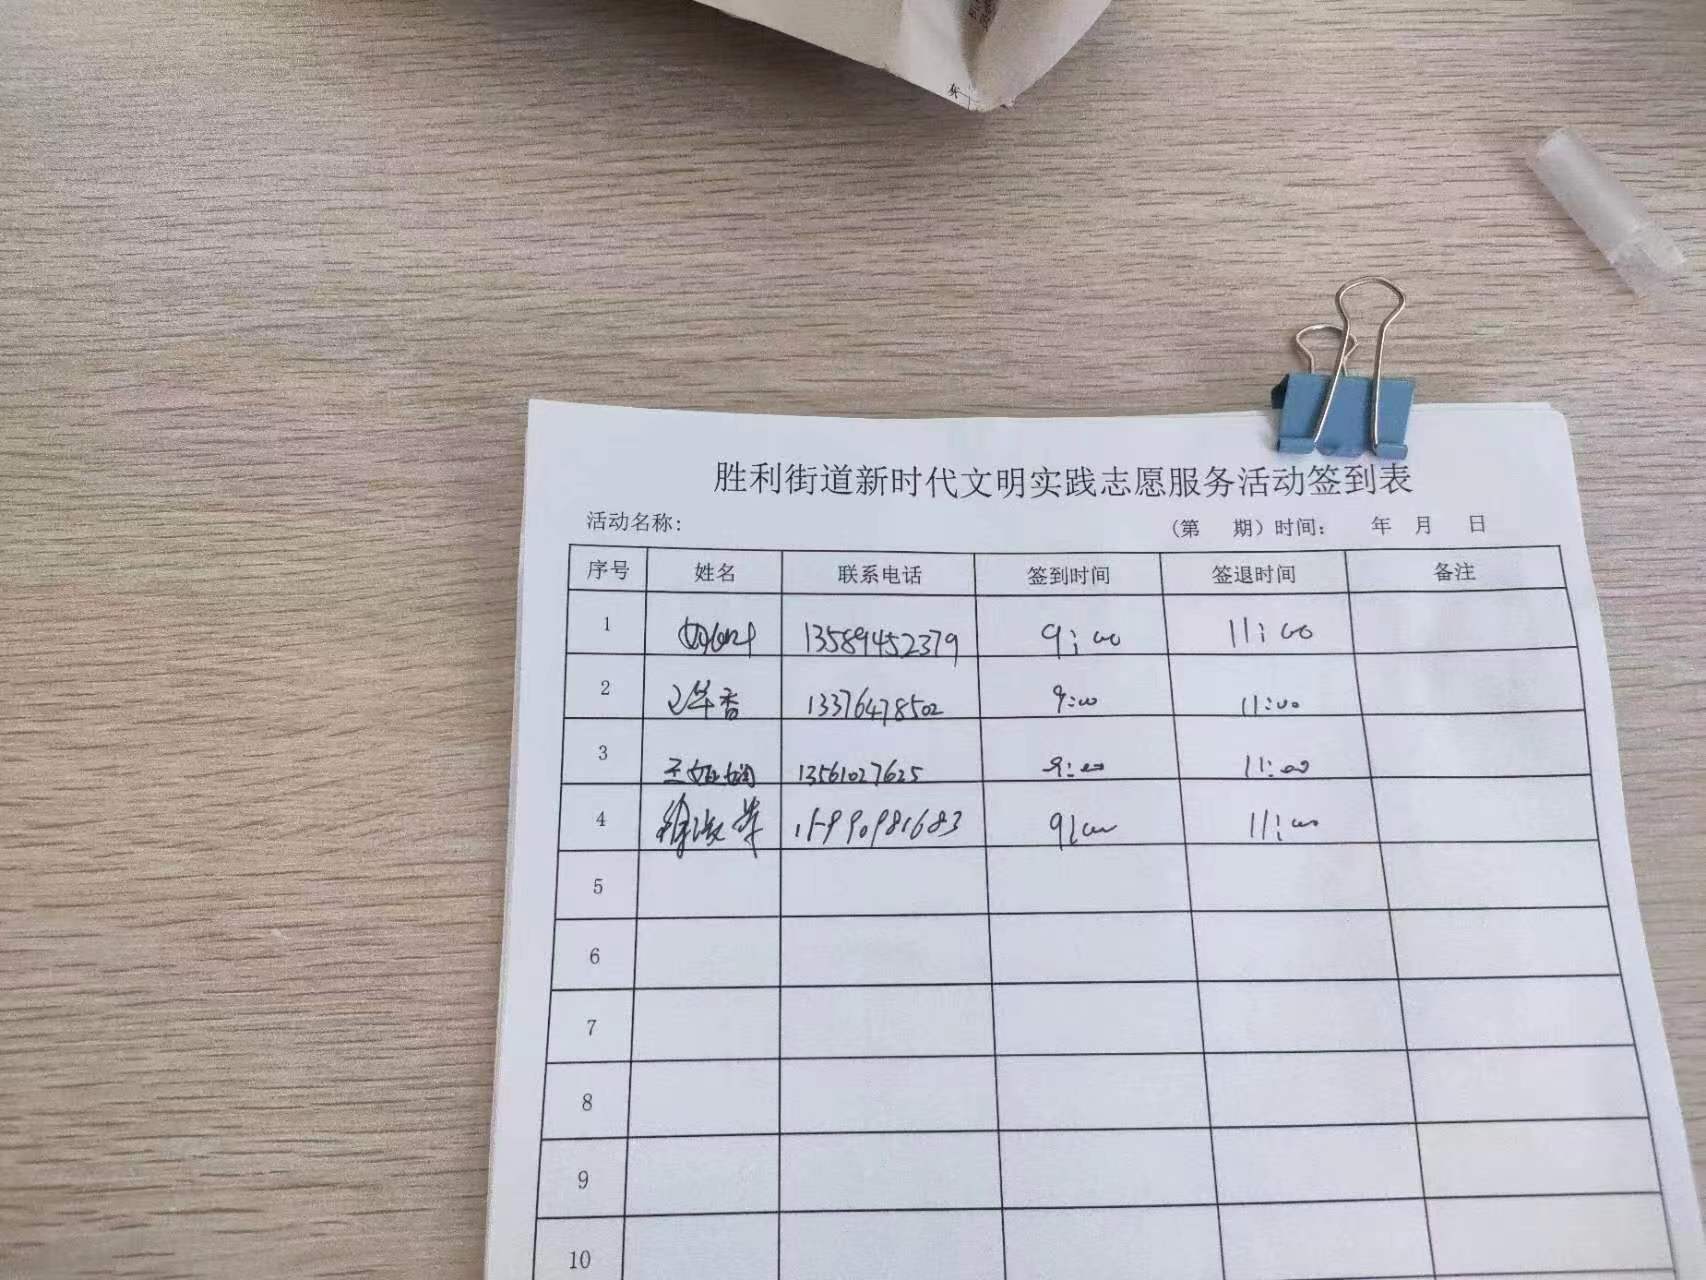 胜利街道新时代文明实践志愿服务活动签到表
活动名称: (第 期) 时间: 年 月 日
序号 姓名 联系电话 签到时间 签退时间 备注
1 13589452379 9:00 11:00
2 华香 13376478502 9:00 11:00
3 王 13561027625 9:00 11:00
4 徐淑 15990981683 9:00 11:00
5
6
7
8
9
10